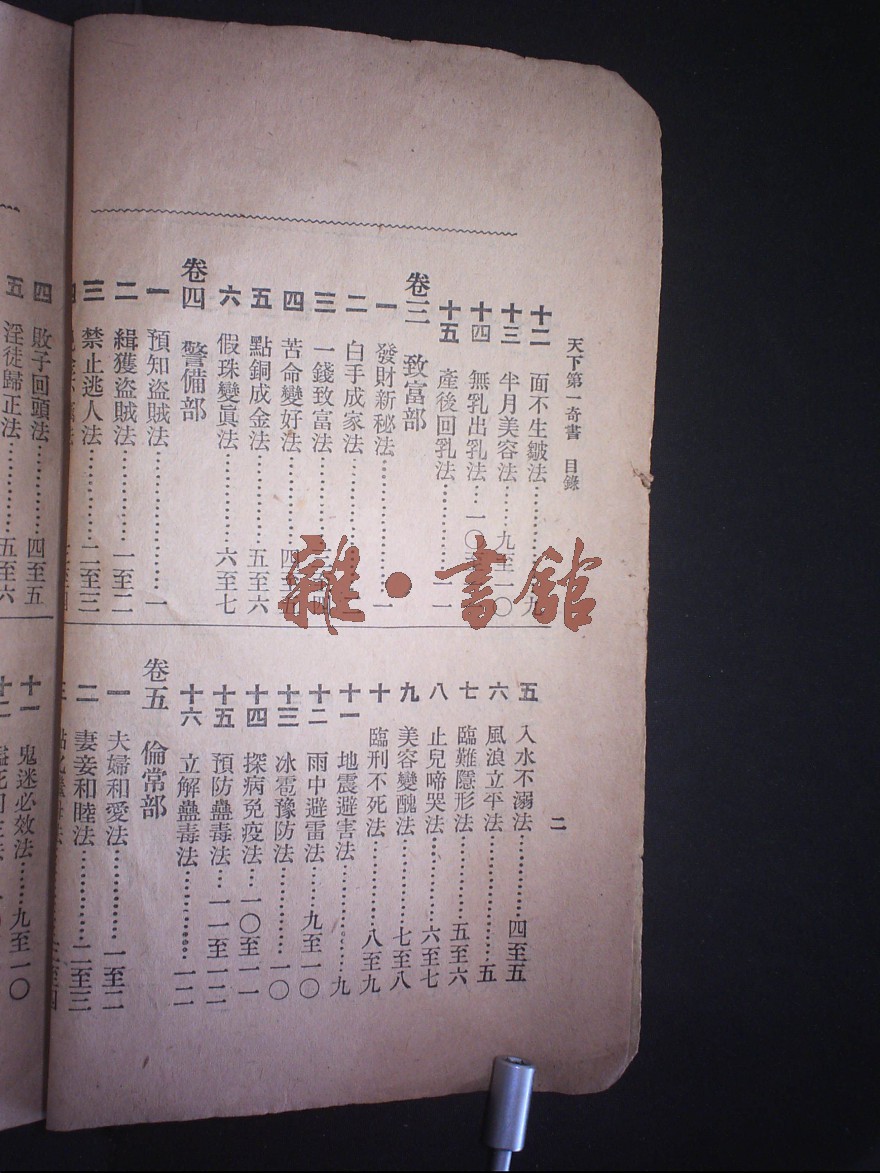 天下第一奇書　目錄
十二　面不生皺法……九
十三　半月美容法…九至一〇
十四　無乳出乳法…一〇至
十五　產後回乳法……一一
卷三　致富部
一　發財新秘法……一
二　白手成家法……
三　一錢致富法……四
四　苦命變好法……四至五
五　點銅成金法……五至六
六　假珠變眞法……六至七
卷四　警備部
一　預知盜賊法……一
二　緝獲盜賊法……一至二
三　禁止逃人法……二至三
四
五　入水不溺法……四至五
六　風浪立平法……五
七　臨難隱形法……五至六
八　止兒啼哭法……六至七
九　美容變醜法……七至八
十　臨刑不死法……八至九
十一　地震避害法……九
十二　雨中避雷法…九至一〇
十三　冰雹豫防法……一〇
十四　探病免疫法…一〇至一一
十五　預防蠱毒法…一一至一二
十六　立解蠱毒法……一二
卷五　倫常部
一　夫婦和愛法……一至二
二　妻妾和睦法……二至三
三
四　敗子回頭法……四至五
五　淫徒歸正法……五至六
十一　鬼迷必效法…九至一〇
十二
二
雜·書館